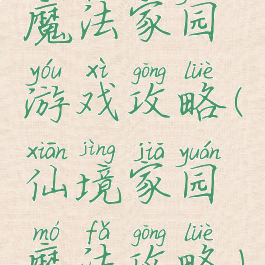 魔法家园
yóu xì gōng lüè
游戏攻略(
xiān jìng jiā yuán
仙境家园
mó fǎ gōng lüè
魔法攻略)